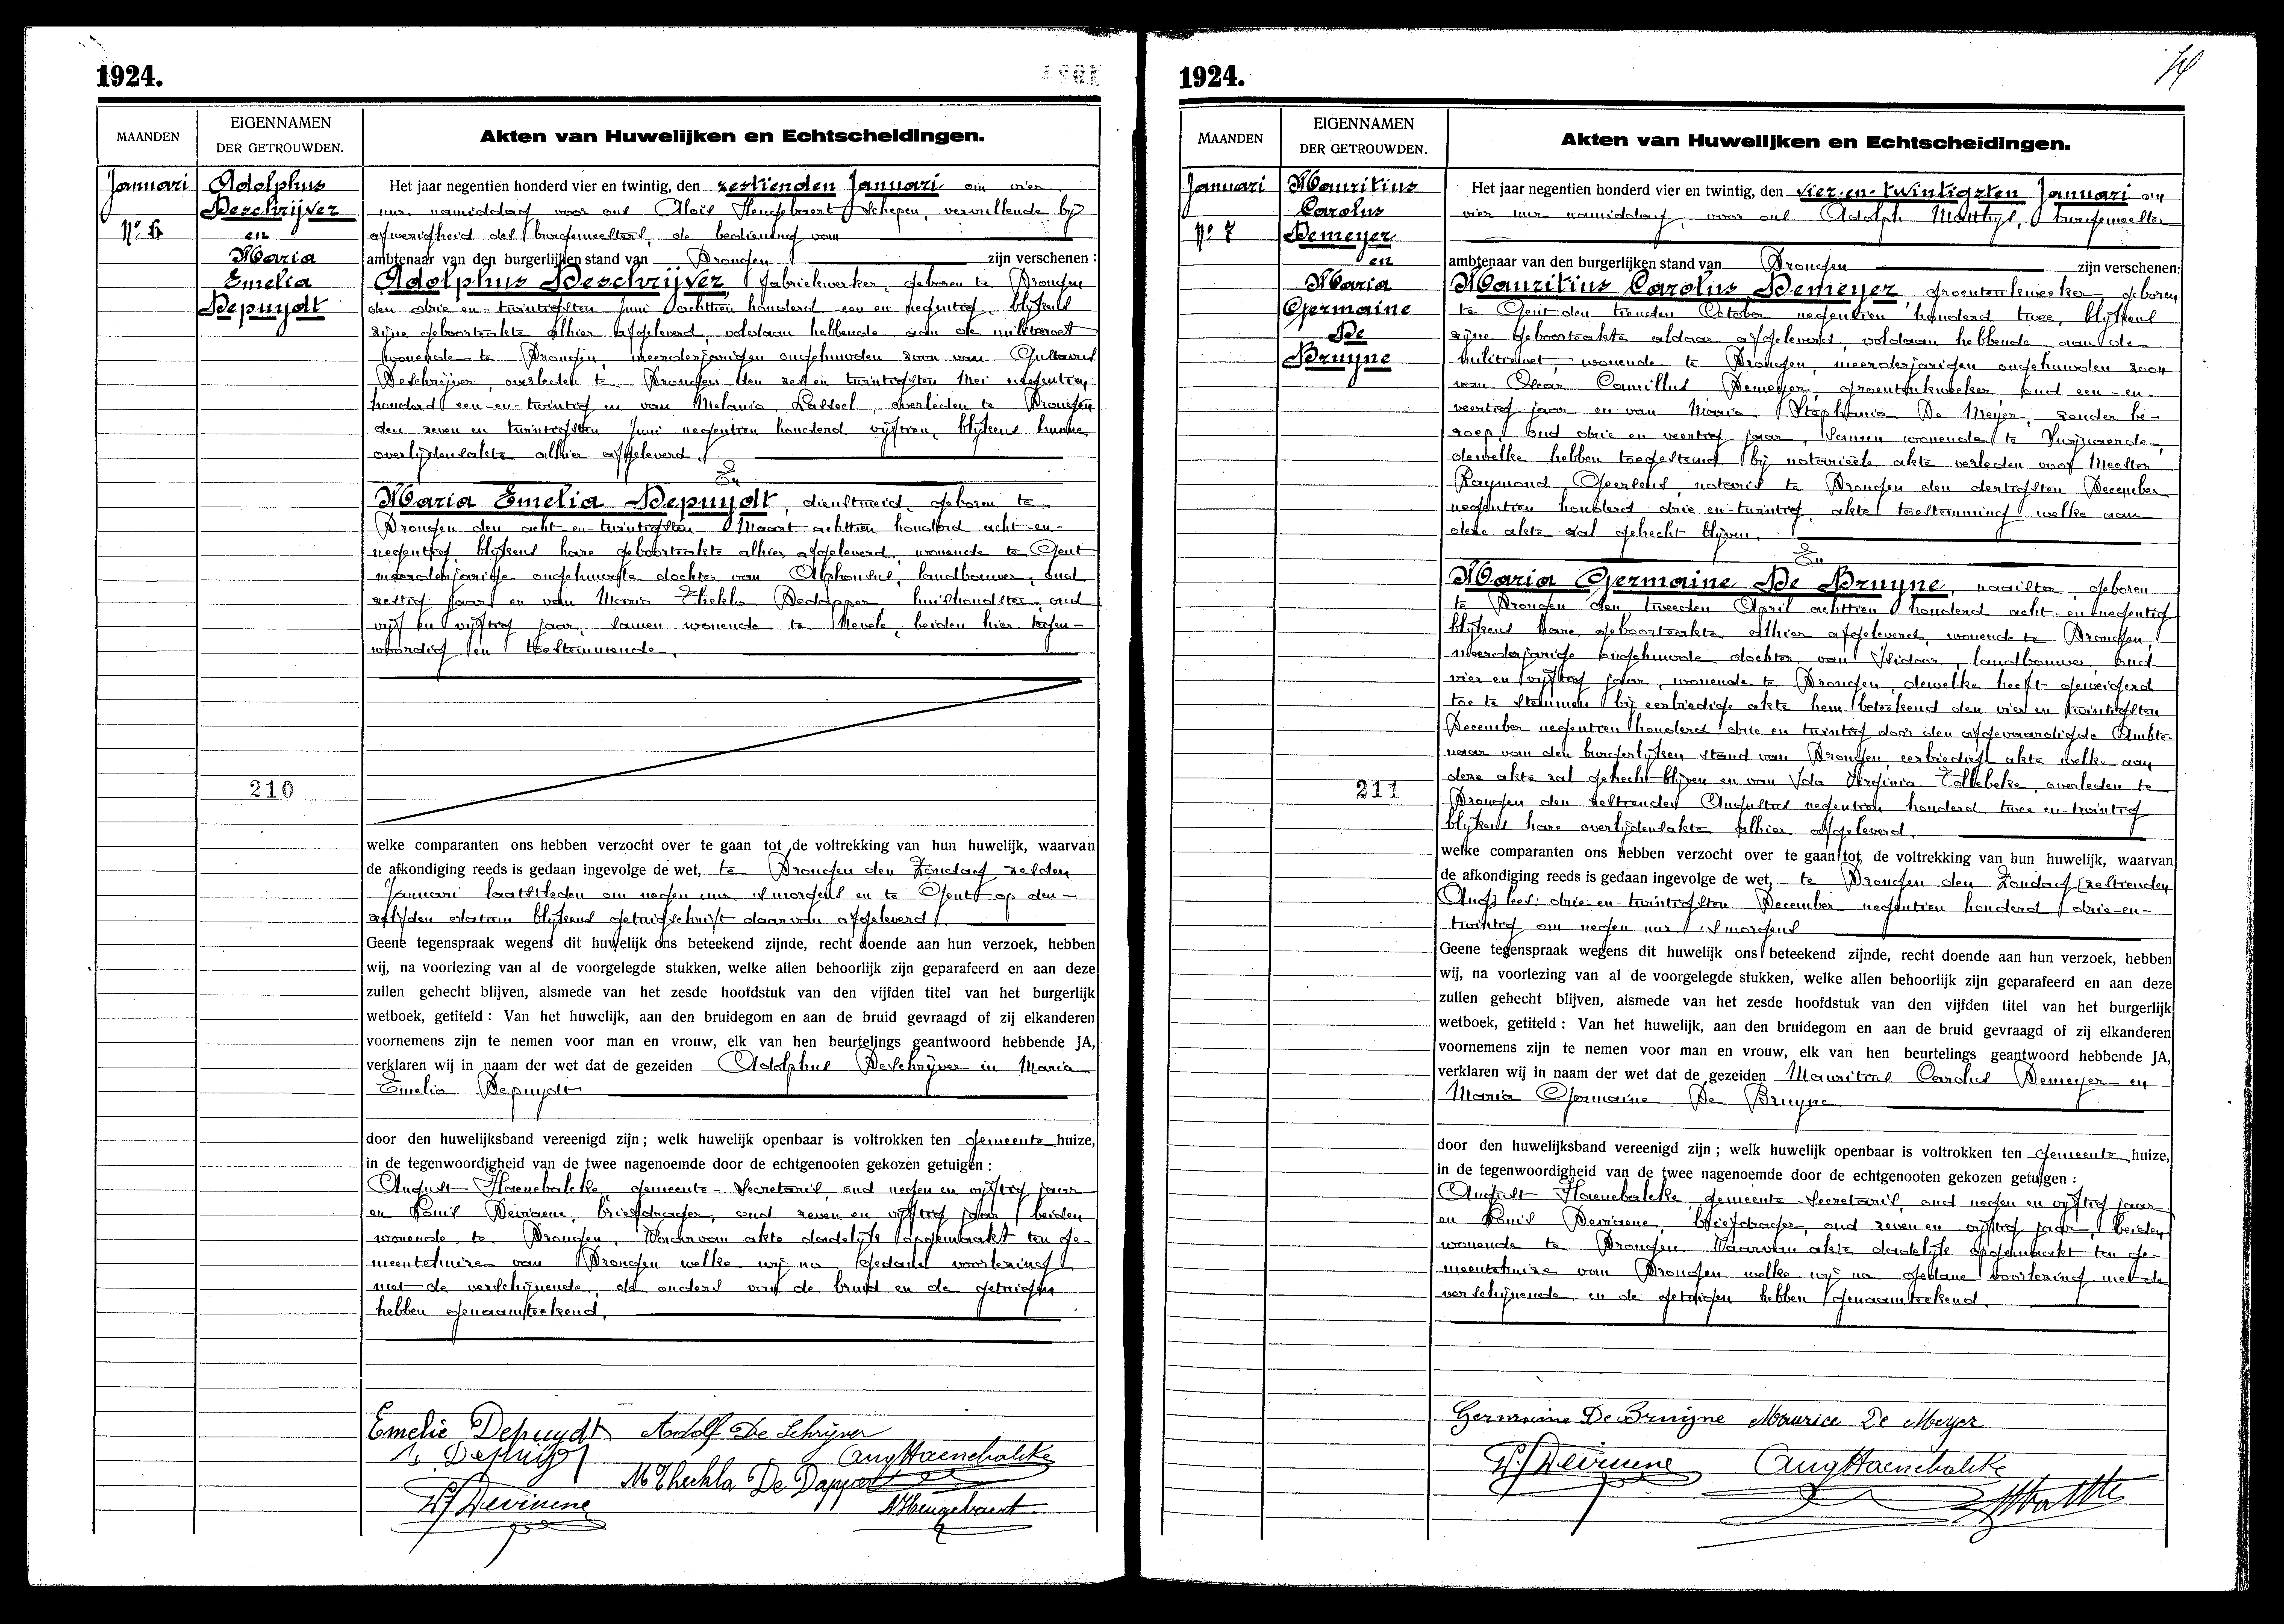 1924.
MAANDEN
EIGENNAMEN
DER GETROUWDEN.
Akten van Huwelijken en Echtscheidingen.
Januari
No 6
Adolphus
Deschrijver
en
Maria
Emelia
Depuydt
210
Het jaar negentien honderd vier en twintig, den zestienden Januari om vier
uur namiddag voor ons Aloïs Heugebaert Schepen, vervullende bij
afwezigheid des burgemeesters, de bediening van
ambtenaar van den burgerlijken stand van Drongen zijn verschenen:
Adolphus Deschrijver, fabriekwerker, geboren te Drongen
den drie en-twintigsten Juni achttien honderd een en negentig, blijkens
zijne geboorteakte alhier afgeleverd, voldaan hebbende aan de militiewet
wonende te Drongen, meerderjarigen ongehuwden zoon van Gustavus
Deschrijver, overleden te Drongen den zes en twintigsten Mei negentien
honderd een-en-twintig en van Melania Lasseel, overleden te Drongen
den zeven en twintigsten Juni negentien honderd vijftien, blijkens hunne
overlijdensakte alhier afgeleverd.
En
Maria Emelia Depuydt, dienstmeid, geboren te
Drongen den acht-en-twintigsten Maart achttien honderd acht-en-
negentig, blijkens hare geboorteakte alhier afgeleverd, wonende te Gent
meerderjarige ongehuwde dochter van Alphonsus, landbouwer, oud
zestig jaar en van Maria Thekla Dedapper, huishoudster, oud
vijf en vijftig jaar, samen wonende te Nevele, beiden hier tegen-
woordig en toestemmende.
welke comparanten ons hebben verzocht over te gaan tot de voltrekking van hun huwelijk, waarvan
de afkondiging reeds is gedaan ingevolge de wet, te Drongen den Zondag zesden
Januari laatstleden om negen uur 's morgens en te Gent op den-
zelfden datum blijkens getuigschrift daarvan afgeleverd.
Geene tegenspraak wegens dit huwelijk ons beteekend zijnde, recht doende aan hun verzoek, hebben
wij, na voorlezing van al de voorgelegde stukken, welke allen behoorlijk zijn geparafeerd en aan deze
zullen gehecht blijven, alsmede van het zesde hoofdstuk van den vijfden titel van het burgerlijk
wetboek, getiteld : Van het huwelijk, aan den bruidegom en aan de bruid gevraagd of zij elkanderen
voornemens zijn te nemen voor man en vrouw, elk van hen beurtelings geantwoord hebbende JA,
verklaren wij in naam der wet dat de gezeiden Adolphus Deschrijver en Maria
Emelia Depuydt
door den huwelijksband vereenigd zijn ; welk huwelijk openbaar is voltrokken ten gemeente huize,
in de tegenwoordigheid van de twee nagenoemde door de echtgenooten gekozen getuigen :
August Haenebalcke, gemeente-Secretaris, oud negen en vijftig jaar
en Remi Deviaene, briefdrager, oud zeven en vijftig jaar, beiden
wonende te Drongen. Waarvan akte dadelijk opgemaakt ten ge-
meentehuize van Drongen welke wij na gedane voorlezing
met de verschijnende, de ouders van de bruid en de getuigen
hebben genaamteekend.
Emelie Depuydt Adolf De Schrijver
Aug Haenebalcke
M Theekla De Dapper
A Heugebaert
1924.
MAANDEN
EIGENNAMEN
DER GETROUWDEN.
Akten van Huwelijken en Echtscheidingen.
Januari
No 7
Mauritius
Carolus
Demeyer
en
Maria
Germaine
De
Bruyne
211
Het jaar negentien honderd vier en twintig, den vier-en-twintigsten Januari om
vier uur namiddag, voor ons Adolph Matthys, burgemeester
ambtenaar van den burgerlijken stand van Drongen zijn verschenen:
Mauritius Carolus Demeyer, groentenkweeker, geboren
te Gent den tienden October negentien honderd twee, blijkens
zijne geboorteakte aldaar afgeleverd, voldaan hebbende aan de
militiewet, wonende te Drongen, meerderjarigen ongehuwden zoon
van Oscar Camillus Demeyer, groentenkweeker oud een-en-
veertig jaar en van Maria Stephania De Meyer, zonder be-
roep, oud drie en veertig jaar, samen wonende te Vinjnaende,
dewelke hebben toegestemd bij notarieële akte verleden voor Meester
Raymond Geerlens, notaris te Drongen den dertigsten December
negentien honderd drie en-twintig, akte toestemming welke aan
deze akte zal gehecht blijven.
En
Maria Germaine De Bruyne, naaister, geboren
te Drongen den tweeden April achttien honderd acht-en negentig
blijkens hare geboorteakte alhier afgeleverd, wonende te Drongen,
meerderjarige ongehuwde dochter van Isidoor, landbouwer, oud
vier en vijftig jaar, wonende te Drongen, dewelke heeft geweigerd
toe te stemmen bij eerbiedige akte hem beteekend den vier en twintigsten
December negentien honderd drie en twintig door den afgevaardigde Ambte-
naar van den burgerlijken stand van Drongen, eerbiedige akte welke aan
deze akte zal gehecht blijven en van Ida Virginia Tollebeke, overleden te
Drongen den zestienden Augustus negentien honderd twee en-twintig
blijkens hare overlijdensakte alhier afgeleverd.
welke comparanten ons hebben verzocht over te gaan tot de voltrekking van hun huwelijk, waarvan
de afkondiging reeds is gedaan ingevolge de wet, te Drongen den Zondag (zestienden
Aug) lees: drie en-twintigsten December negentien honderd drie-en-
twintig om negen uur 's morgens
Geene tegenspraak wegens dit huwelijk ons beteekend zijnde, recht doende aan hun verzoek, hebben
wij, na voorlezing van al de voorgelegde stukken, welke allen behoorlijk zijn geparafeerd en aan deze
zullen gehecht blijven, alsmede van het zesde hoofdstuk van den vijfden titel van het burgerlijk
wetboek, getiteld : Van het huwelijk, aan den bruidegom en aan de bruid gevraagd of zij elkanderen
voornemens zijn te nemen voor man en vrouw, elk van hen beurtelings geantwoord hebbende JA,
verklaren wij in naam der wet dat de gezeiden Mauritius Carolus Demeyer en
Maria Germaine De Bruyne
door den huwelijksband vereenigd zijn ; welk huwelijk openbaar is voltrokken ten gemeente huize,
in de tegenwoordigheid van de twee nagenoemde door de echtgenooten gekozen getuigen :
August Haenebalcke, gemeente-Secretaris, oud negen en vijftig jaar
en Remi Deviaene, briefdrager, oud zeven en vijftig jaar, beiden
wonende te Drongen. Waarvan akte dadelijk opgemaakt ten ge-
meentehuize van Drongen welke wij na gedane voorlezing met de
verschijnende en de getuigen hebben genaamteekend.
Germaine De Bruijne Maurice De Meyer
Aug Haenebalcke